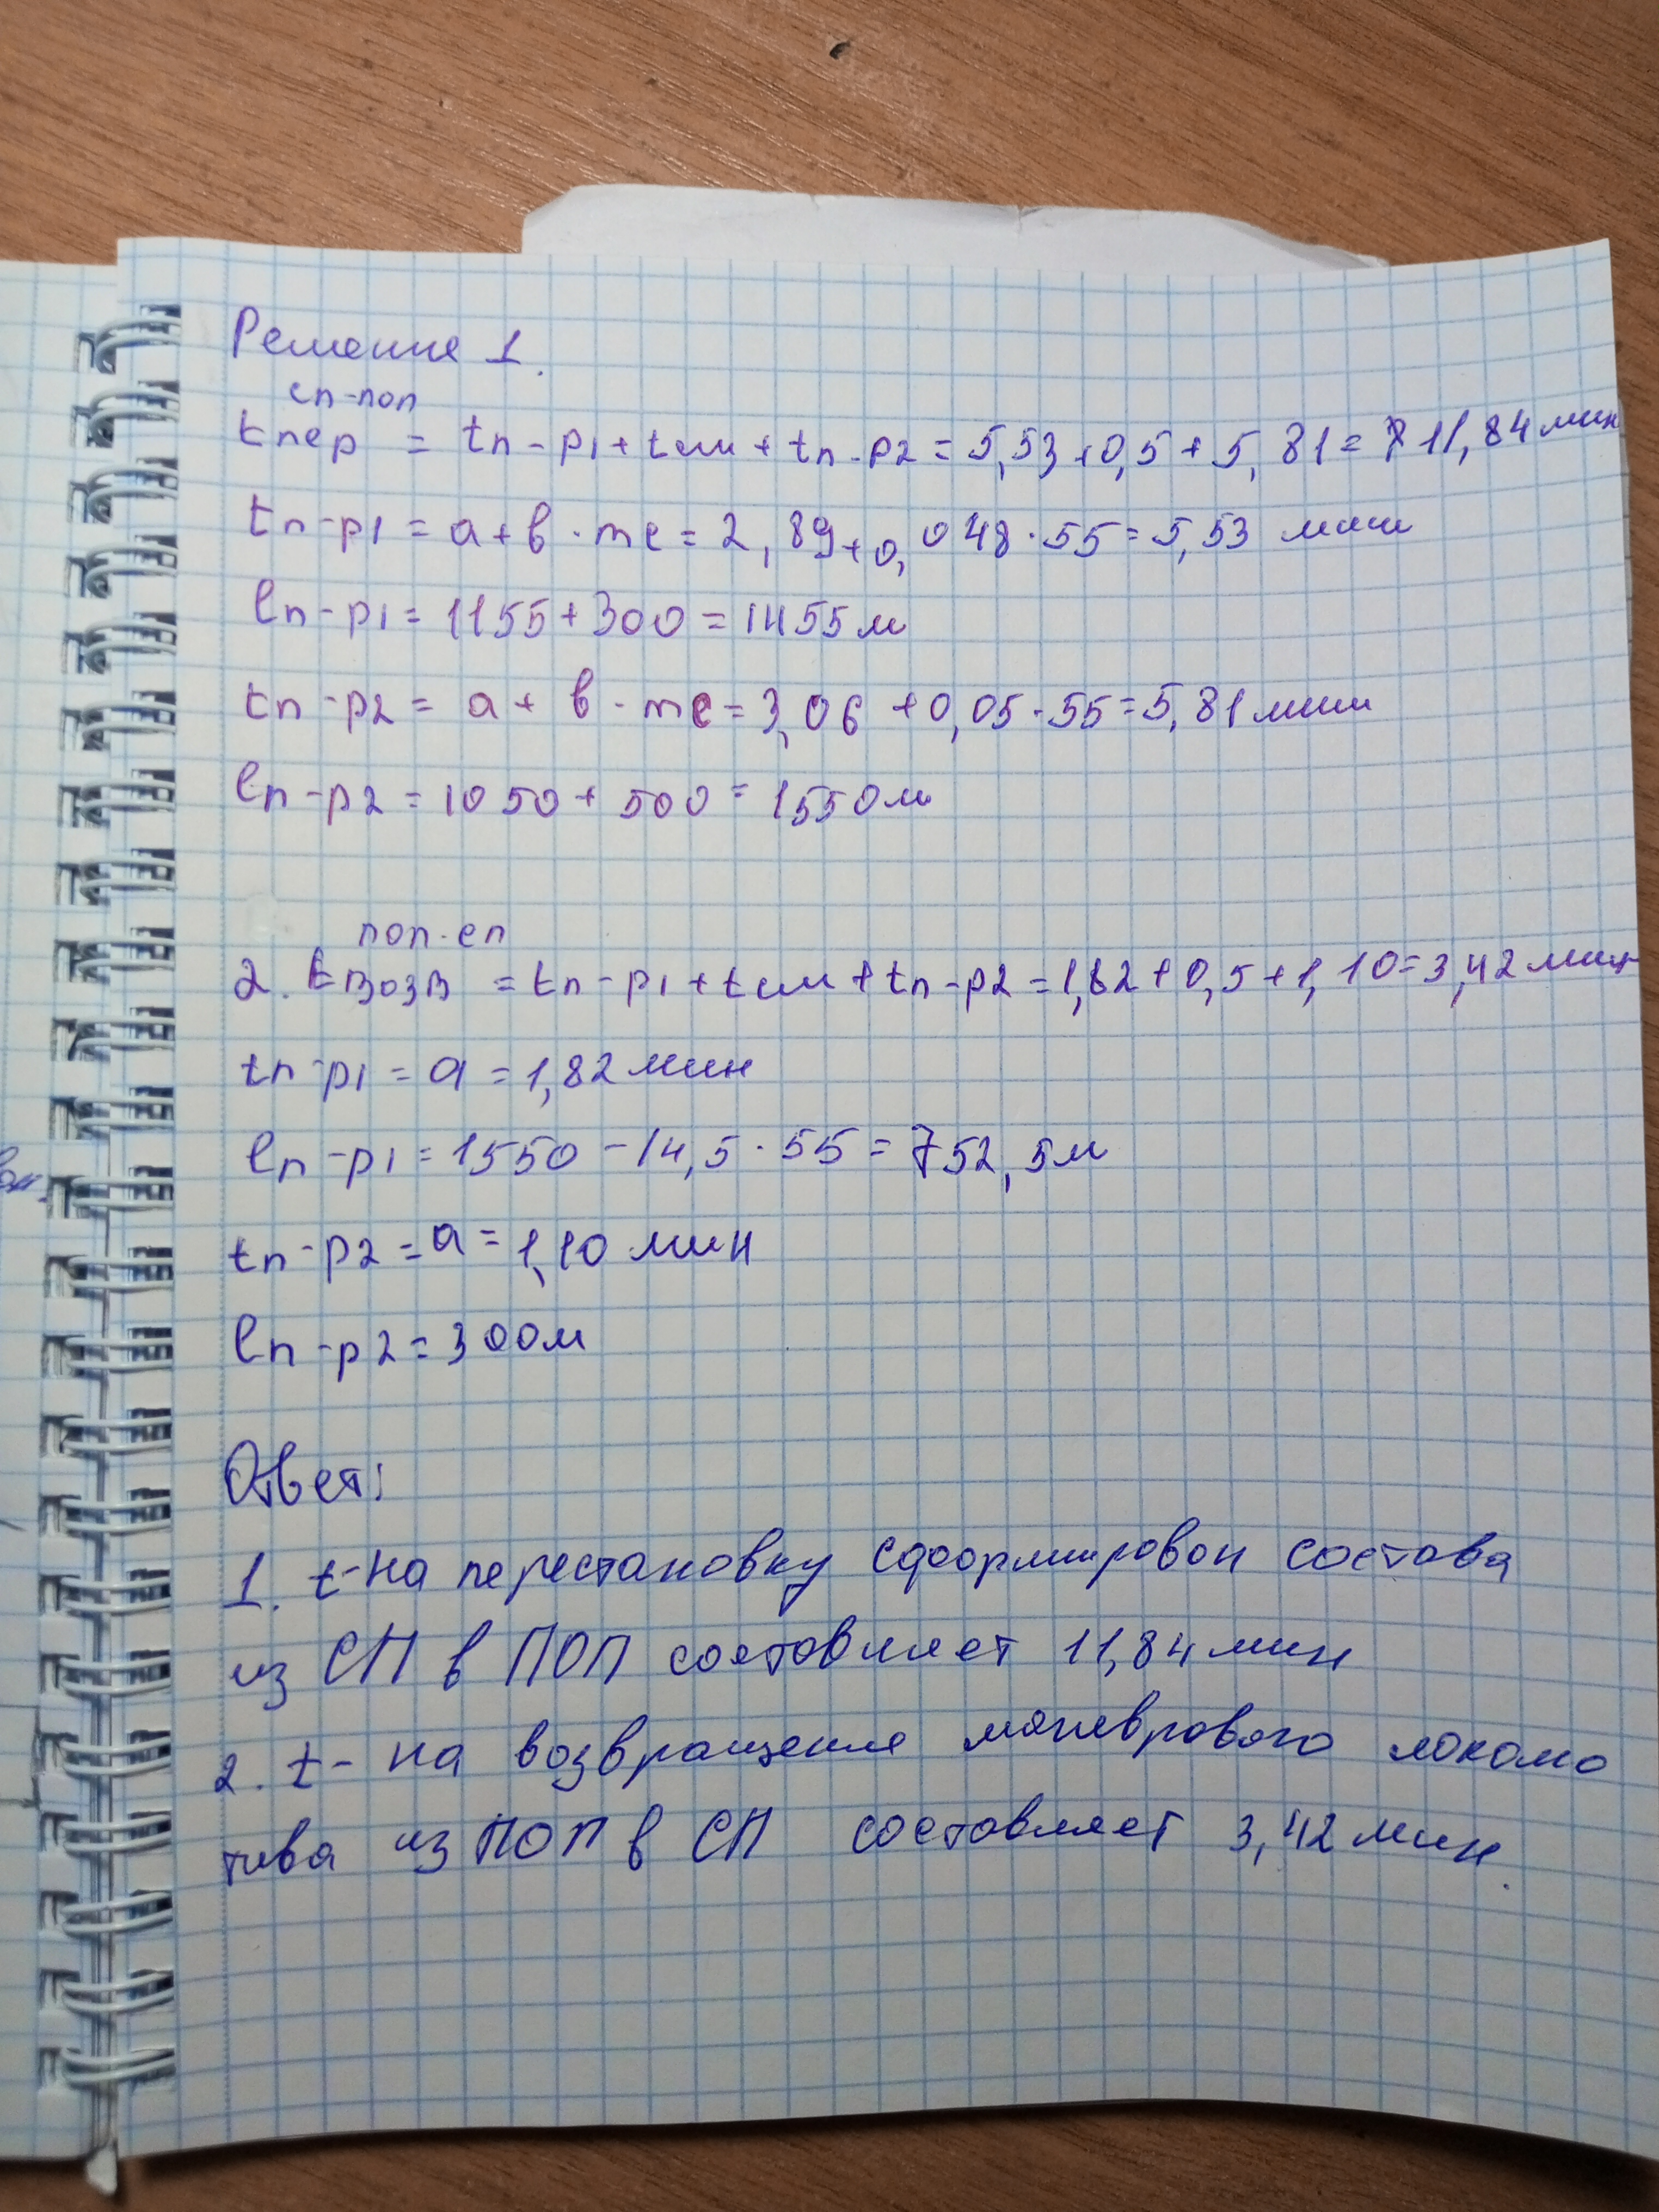 Решение 1.
сп-поп
tпер = tп-р1 + tсм + tп-р2 = 5,53 + 0,5 + 5,81 = 11,84 мин
tп-р1 = а + в · mc = 2,89 + 0,048 · 55 = 5,53 мин
lп-р1 = 1155 + 300 = 1455 м
tп-р2 = а + в · mc = 3,06 + 0,05 · 55 = 5,81 мин
lп-р2 = 1050 + 500 = 1550 м
поп-сп
2. tвозв = tп-р1 + tсм + tп-р2 = 1,82 + 0,5 + 1,10 = 3,42 мин
tп-р1 = а = 1,82 мин
lп-р1 = 1550 - 14,5 · 55 = 752,5 м
tп-р2 = а = 1,10 мин
lп-р2 = 300 м
Ответ:
1. t-на перестановку сформирован состава
из СП в ПОП составляет 11,84 мин
2. t- на возвращение маневрового локомо
тива из ПОП в СП составляет 3,42 мин.